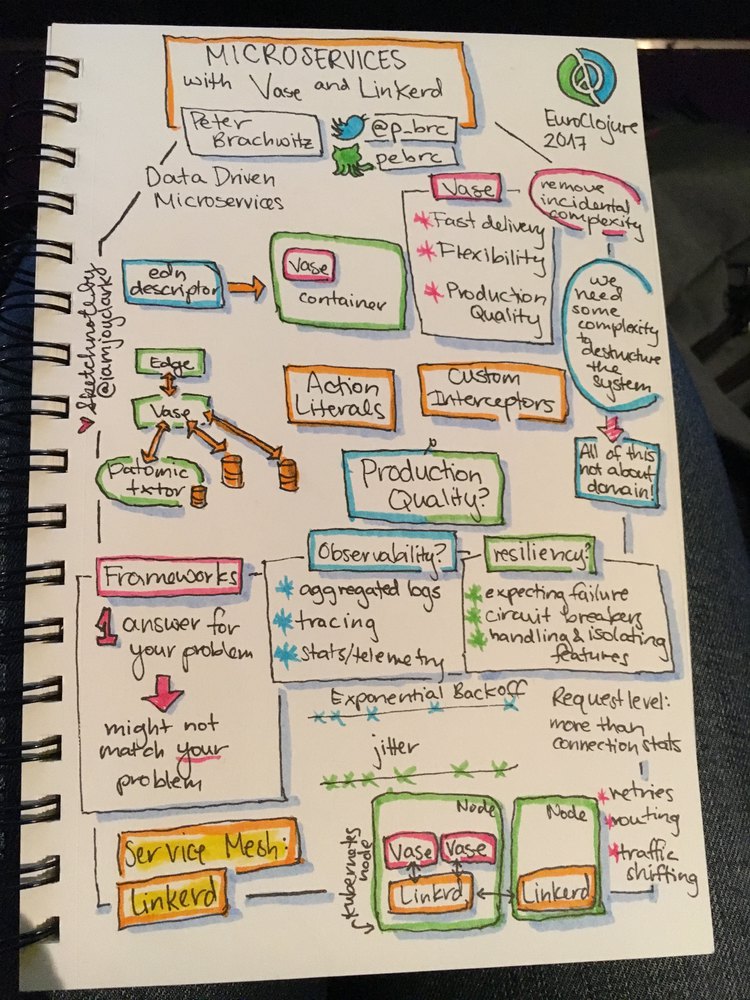 MICROSERVICES
with Vase and Linkerd
Peter
Brachwitz
@p_brc
pebrc
EuroClojure
2017
Data Driven
Microservices
Vase
Fast delivery
Flexibility
Production
Quality
remove
incidental
complexity
edn
descriptor
Vase
container
we
need
some
complexity
to
destructure
the
system
Sketchnote by
@iamjoyclark
Edge
Vase
Datomic
txtor
Action
Literals
Custom
Interceptors
All of this
not about
domain!
Production
Quality?
Frameworks
1 answer for
your problem
might not
match your
problem
Observability?
aggregated logs
tracing
stats/telemetry
resiliency?
expecting failure
circuit breakers
handling & isolating
features
Exponential Backoff
jitter
Request level:
more than
connection stats
retries
routing
traffic
shifting
Service Mesh:
Linkerd
kubernetes
node
Node
Vase
Vase
Linkrd
Node
Linkerd